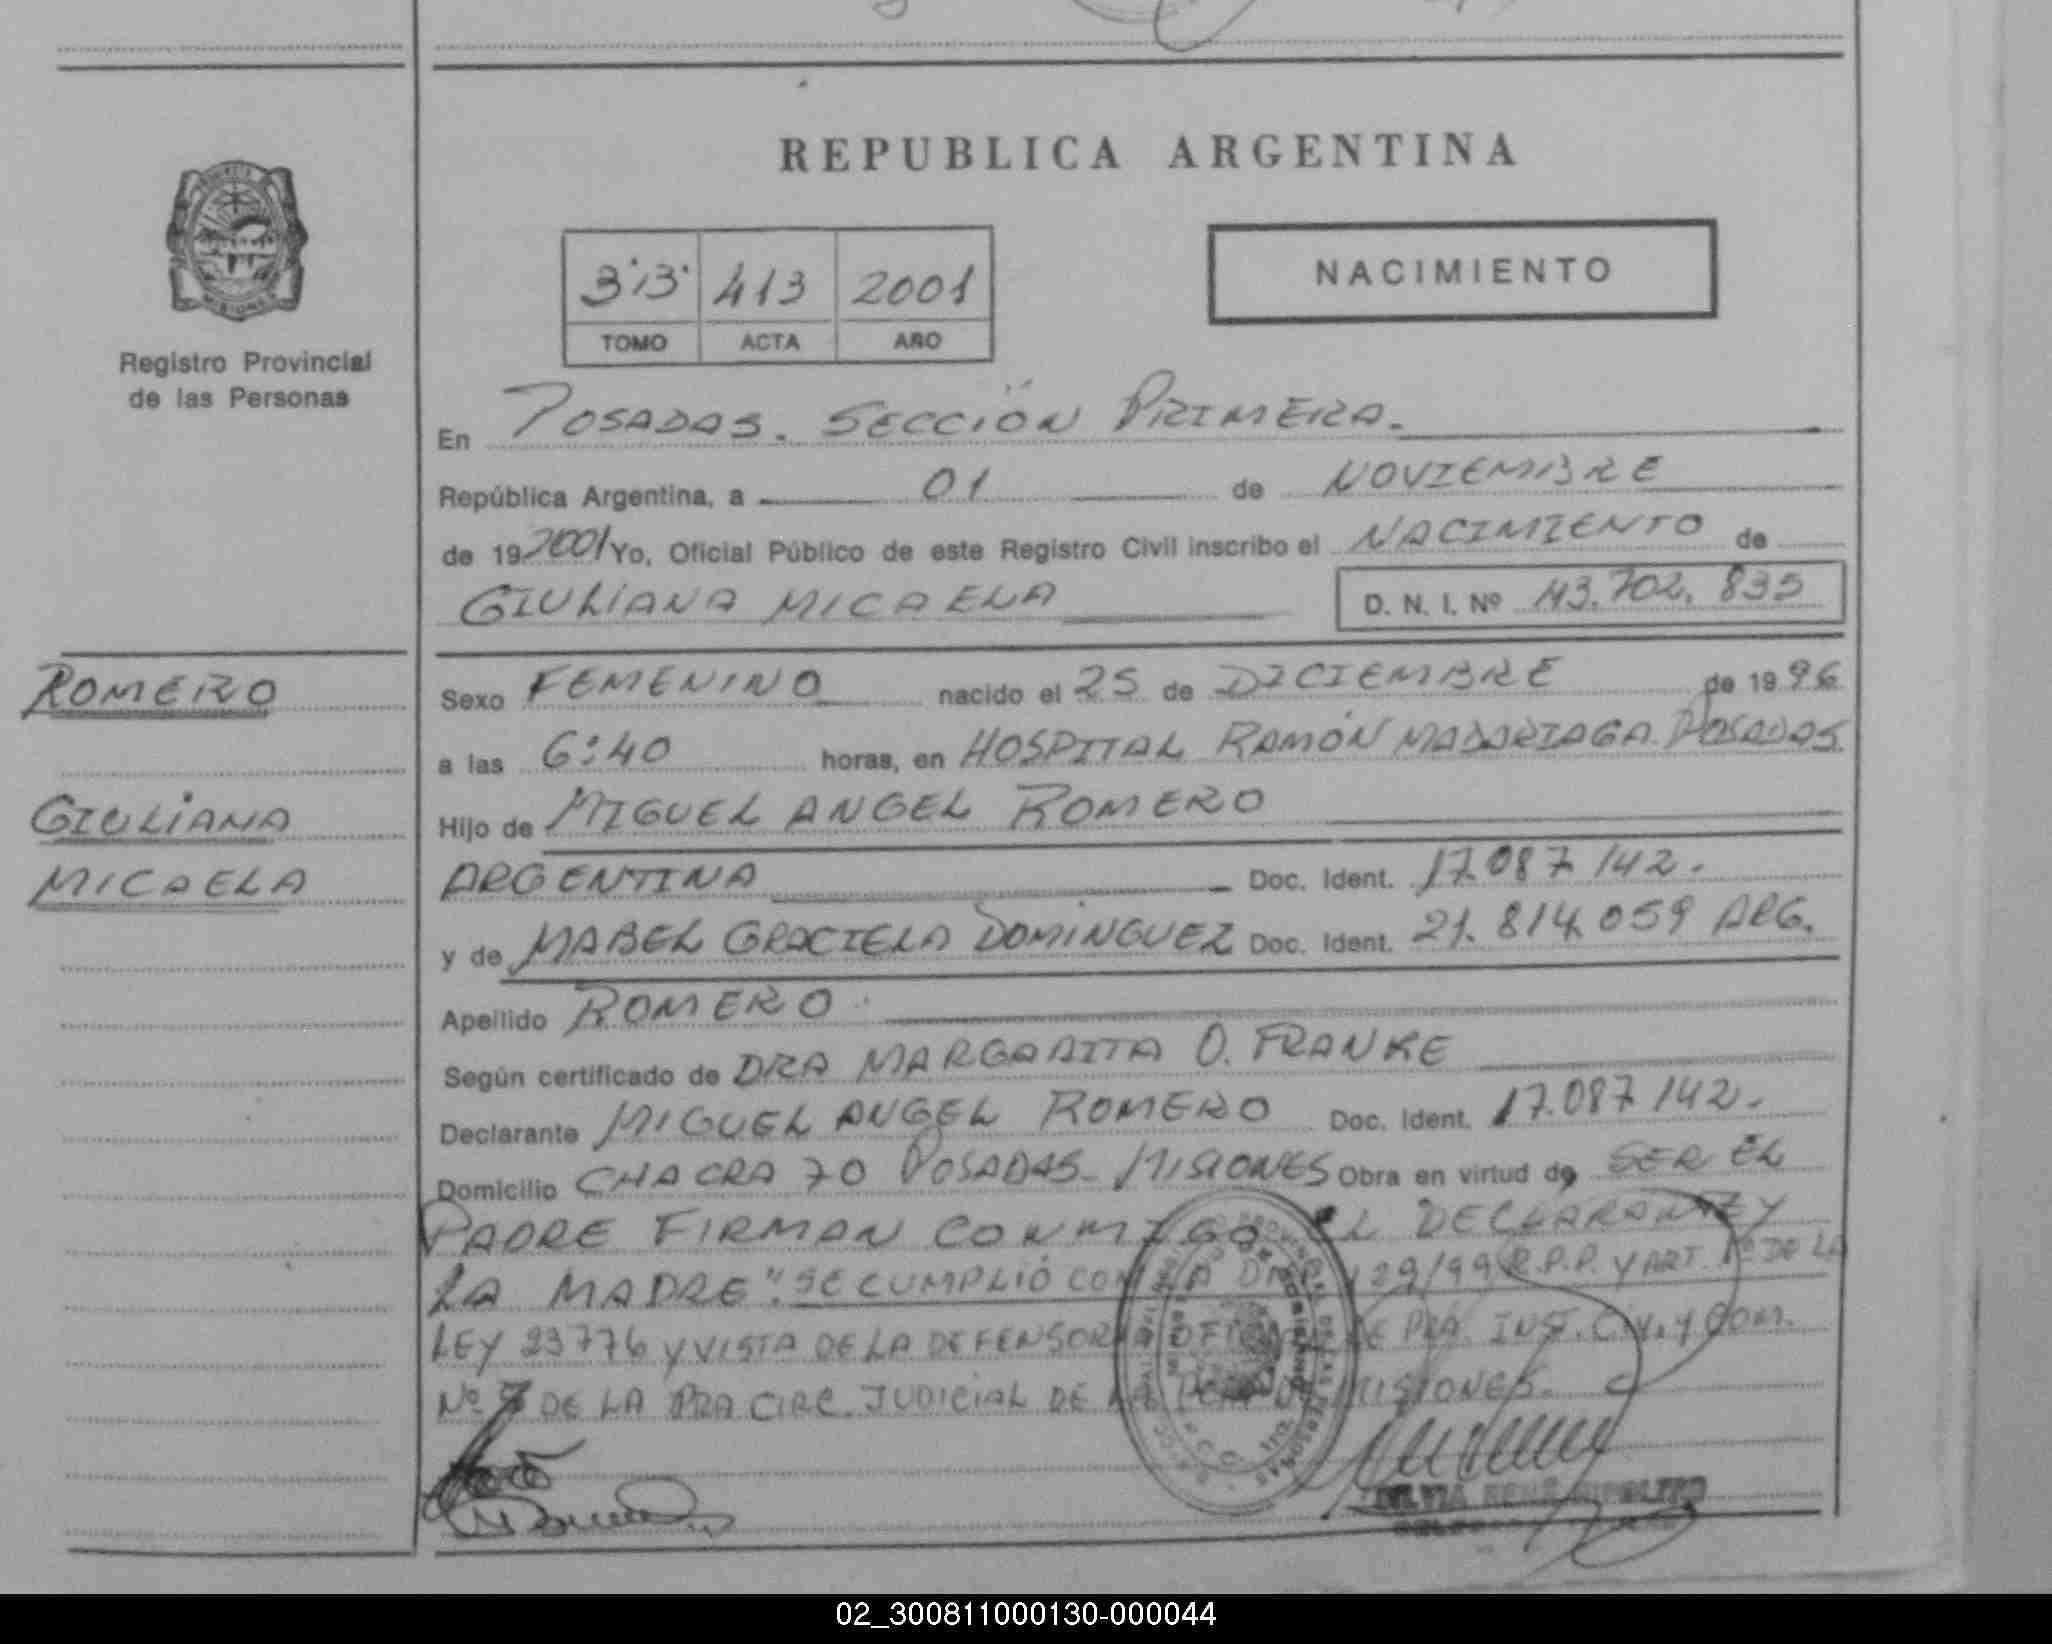 REPUBLICA ARGENTINA
413 2001
TOMO ACTA AÑO
NACIMIENTO
Registro Provincial
de las Personas
En POSADAS. SECCIÓN PRIMERA.
República Argentina, a 01 de NOVIEMBRE
de 19 2001 Yo, Oficial Público de este Registro Civil inscribo el NACIMIENTO de
GIULIANA MICAELA D. N. I. Nº 43.702.835
ROMERO
GIULIANA
MICAELA
Sexo FEMENINO nacido el 25 de DICIEMBRE de 1996
a las 6:40 horas, en HOSPITAL RAMÓN MADARIAGA POSADAS
Hijo de MIGUEL ANGEL ROMERO
ARGENTINA Doc. Ident. 17.087.142.
y de MABEL GRACIELA DOMINGUEZ Doc. Ident. 21.814.059 ARG.
Apellido ROMERO
Según certificado de DRA MARGARITA O. FRANKE
Declarante MIGUEL ANGEL ROMERO Doc. Ident. 17.087.142.
Domicilio CHACRA 70 POSADAS - MISIONES Obra en virtud de SER EL
PADRE FIRMAN CONMIGO EL DECLARANTE Y
LA MADRE ". SE CUMPLIÓ CON LA 129/99 R.P.P. Y ART. 1º DE LA
LEY 23776 Y VISTA DE LA DEFENSORIA DE PRA. INST. CIV. Y COM.
Nº 7 DE LA PRA CIRC. JUDICIAL DE MISIONES.
02_300811000130-000044